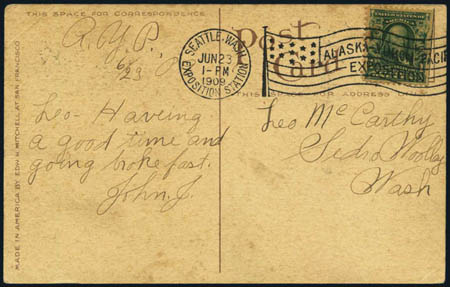 THIS SPACE FOR CORRESPONDENCE
A.Y.P.
6/23
Leo- Haveing
a good time and
going broke fast.
John J.
MADE IN AMERICA BY EDW H. MITCHELL AT SAN FRANCISCO
Post
Card
SEATTLE, WASH.
JUN 23
1-PM
1909
EXPOSITION STATION
ALASKA-YUKON-PACIFIC
EXPOSITION
THIS SPACE FOR ADDRESS ONLY
Leo McCarthy
Sedro Woolley
Wash